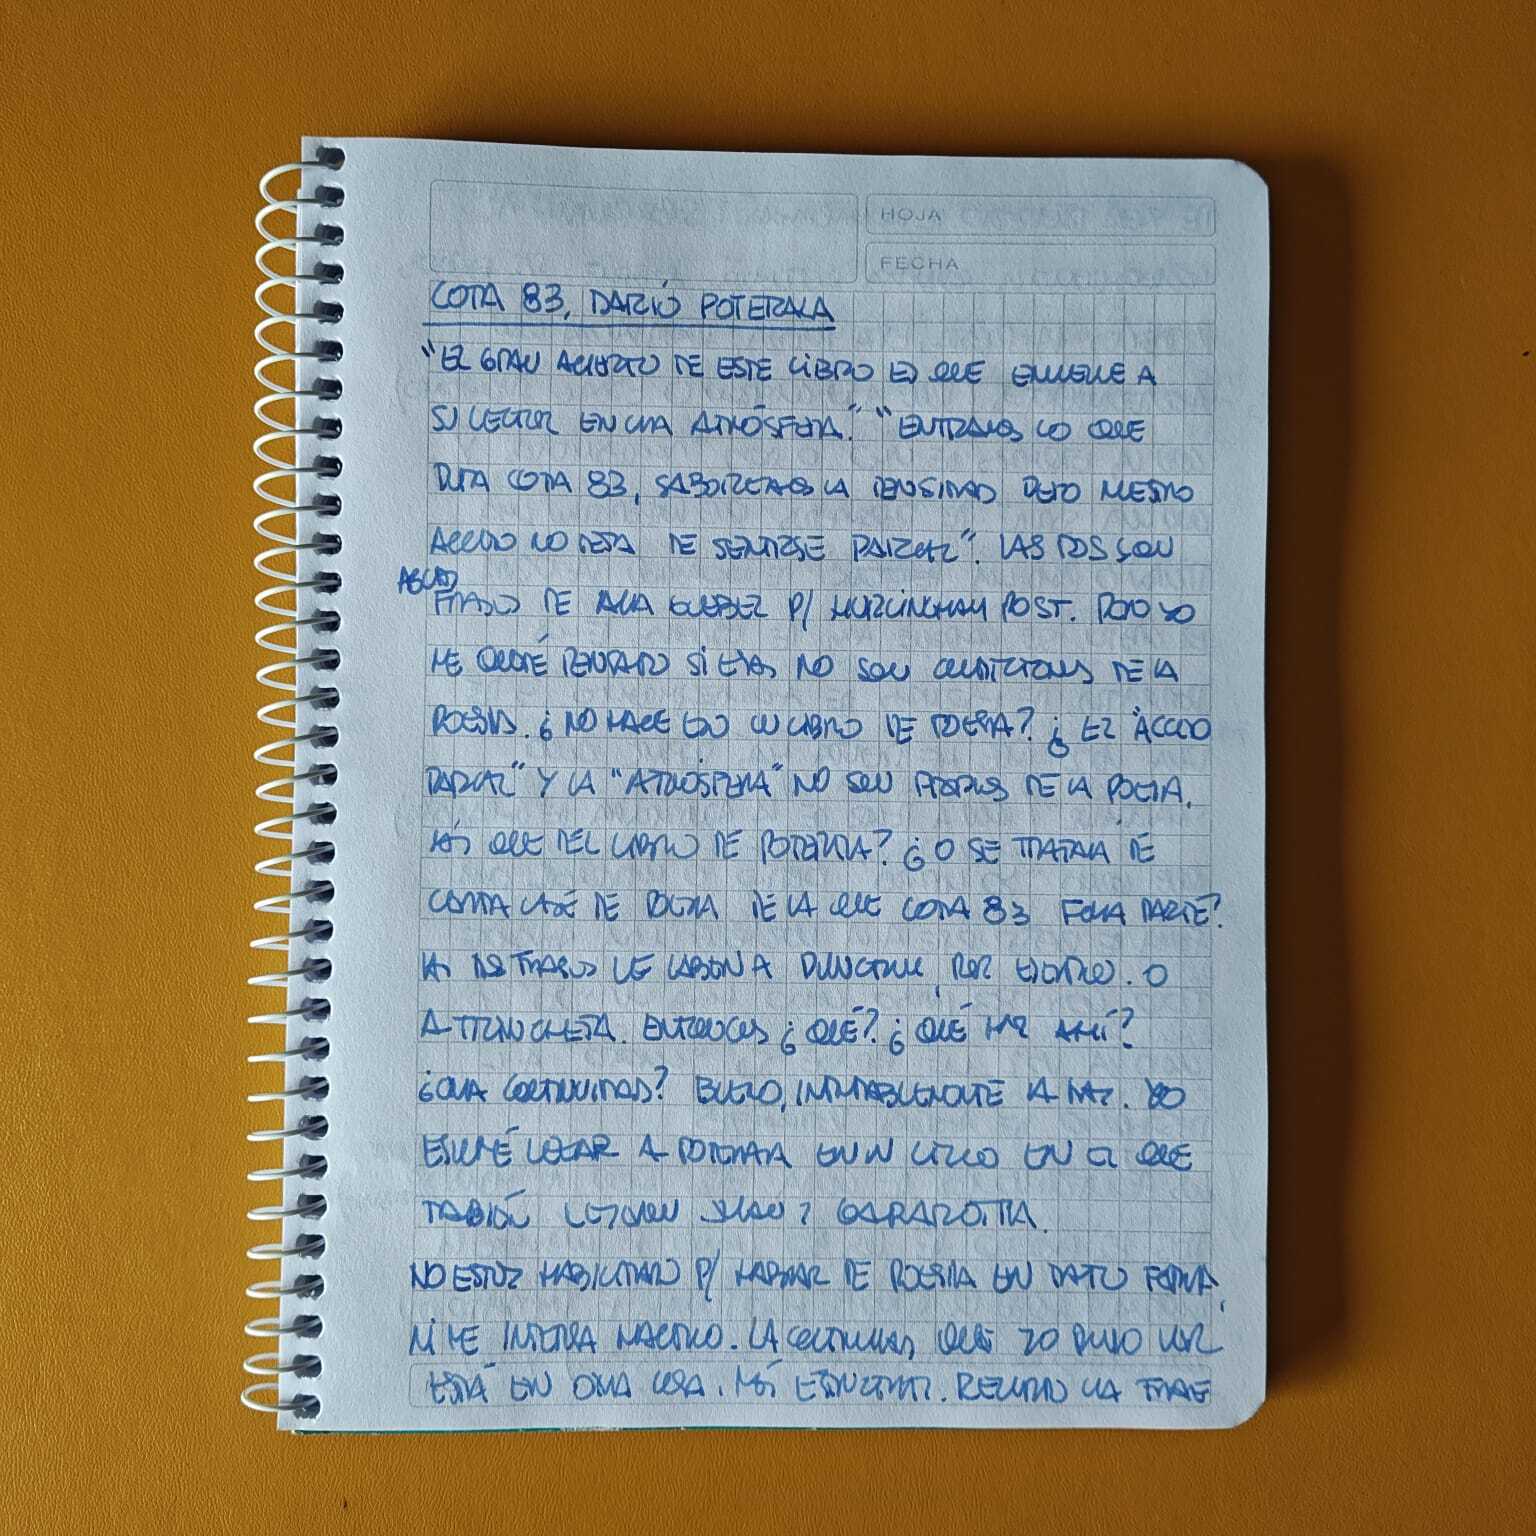 HOJA
FECHA
COTA 83, DARÍO POTERALA
"EL GRAN ACIERTO DE ESTE LIBRO ES QUE ENVUELVE A
SU LECTOR EN UNA ATMÓSFERA." "ENTRAMOS LO QUE
DURA COTA 83, SABOREAMOS LA DENSIDAD PERO NUESTRO
ACCESO NO DEJA DE SENTIRSE PARCIAL". LAS DOS SON
FRASES DE P/ HURLINGHAM POST. PERO YO
ME QUEDÉ PENSANDO SI ESAS NO SON CONDICIONES DE LA
POESÍA. ¿NO HACE ESO UN LIBRO DE POESÍA? ¿EL "ACCESO
PARCIAL" Y LA "ATMÓSFERA" NO SON PROPIOS DE LA POESÍA,
MÁS QUE DEL LIBRO DE POTERALA? ¿O SE TRATARÍA DE
CIERTA CLASE DE POESÍA DE LA QUE COTA 83 FORMA PARTE?
LAS DOS FRASES LE CABEN A PUNCTUM, POR EJEMPLO. O
A TRINCHETA. ENTONCES ¿QUÉ? ¿QUÉ HAY AHÍ?
¿UNA CONTINUIDAD? BUENO, INDUDABLEMENTE LA HAY. YO
ESCUCHÉ LEER A POTERALA EN UN CICLO EN EL QUE
TAMBIÉN LEYERON Y GAMBAROTTA.
NO ESTOY HABILITADO P/ HABLAR DE POESÍA EN FORMA,
NI ME INTERESA HACERLO. LA QUE YO PUEDO VER
ESTÁ EN OTRA COSA. RECUERDO UNA FRASE